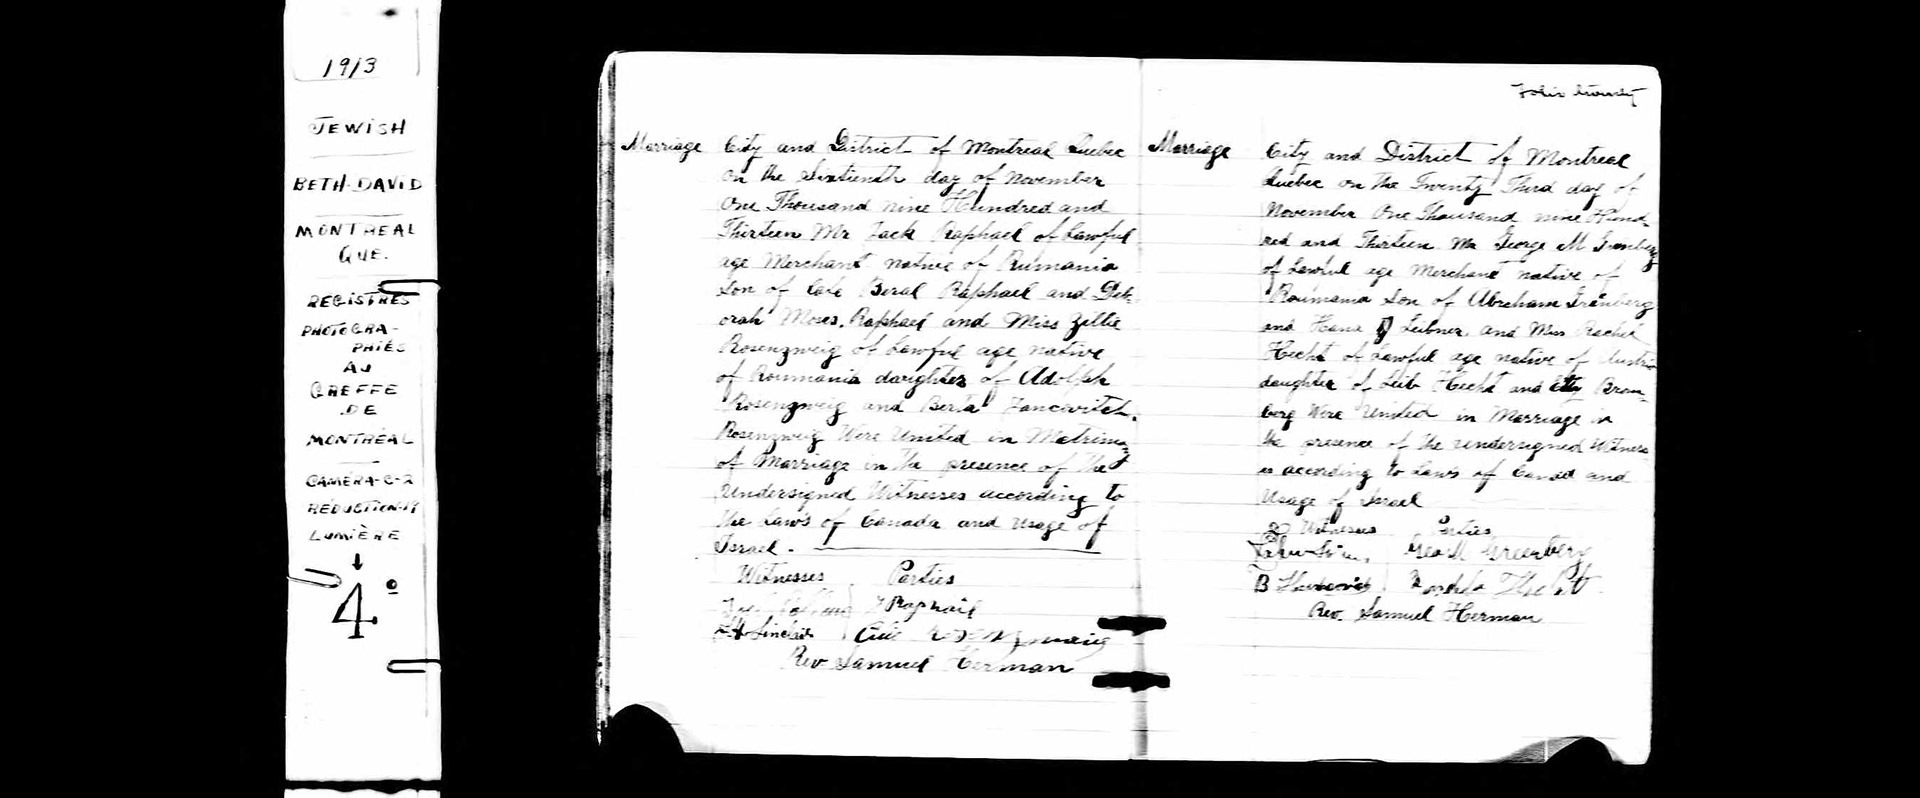 1913
JEWISH
BETH-DAVID
MONTREAL
QUE.
REGISTRES
PHOTOGRA-
PHIÉS
AU
GREFFE
DE
MONTRÉAL
CAMÉRA-C-2
RÉDUCTION-19
LUMIÈRE
4°
Marriage City and District of Montreal Quebec
on the Sixteenth day of November
One Thousand nine Hundred and
Thirteen Mr Jack Raphael of Lawful
age Merchant native of Rumania
Son of Late Beral Raphael and Deb-
orah Moses, Raphael and Miss Zillie
Rosenzweig of Lawful age native
of Roumania daughter of Adolph
Rosenzweig and Berta Jancovitch.
Rosenzweig Were United in Matrimo
of Marriage in the presence of the
Undersigned Witnesses according to
the Laws of Canada and Usage of
Israel.
Witnesses Parties
J Raphael
Sinclair
Rev Samuel Herman
Folio
Marriage City and District of Montreal
Quebec on the Twenty Third day of
November One Thousand nine Hund-
red and Thirteen Mr George M Grinberg
of Lawful age Merchant native of
Roumania Son of Abraham Grinberg
and Hana Leibner and Miss Rachel
Hecht of Lawful age native of Austria
daughter of Leib Hecht and Etty Brom-
berg Were United in Marriage in
the presence of the undersigned Witness-
es according to Laws of Canad and
Usage of Israel
Witnesses Parties
Geo M Greenberg
B
Rev. Samuel Herman